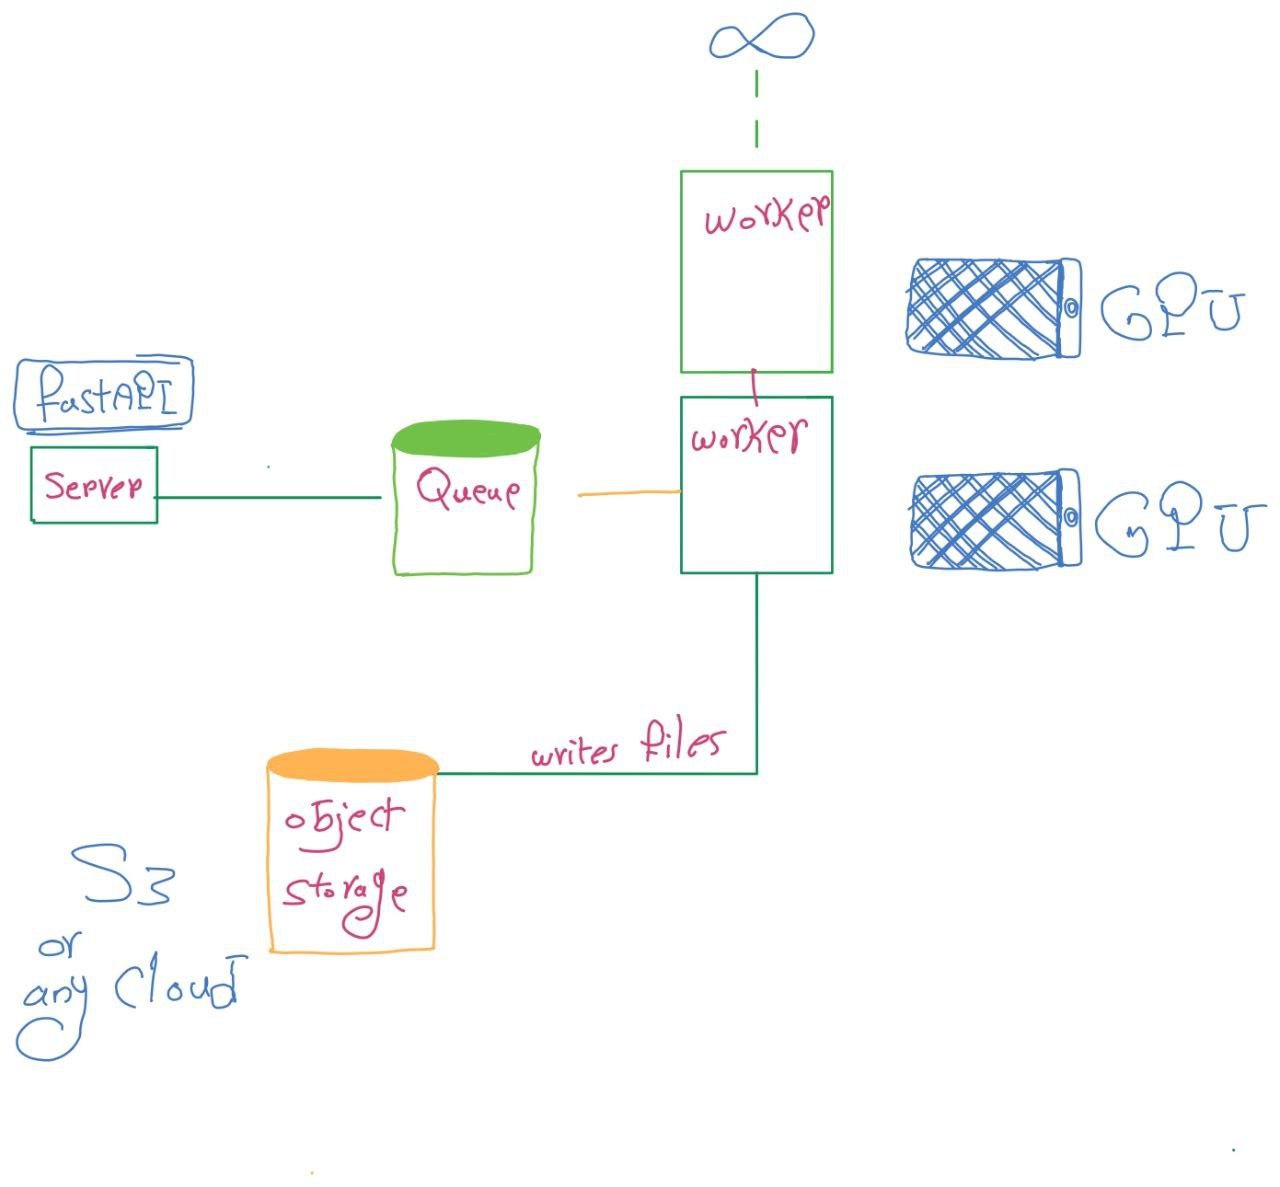 ∞
worker
GPU
fastAPI
Server
Queue
worker
GPU
writes files
object
storage
S3
or
any cloud